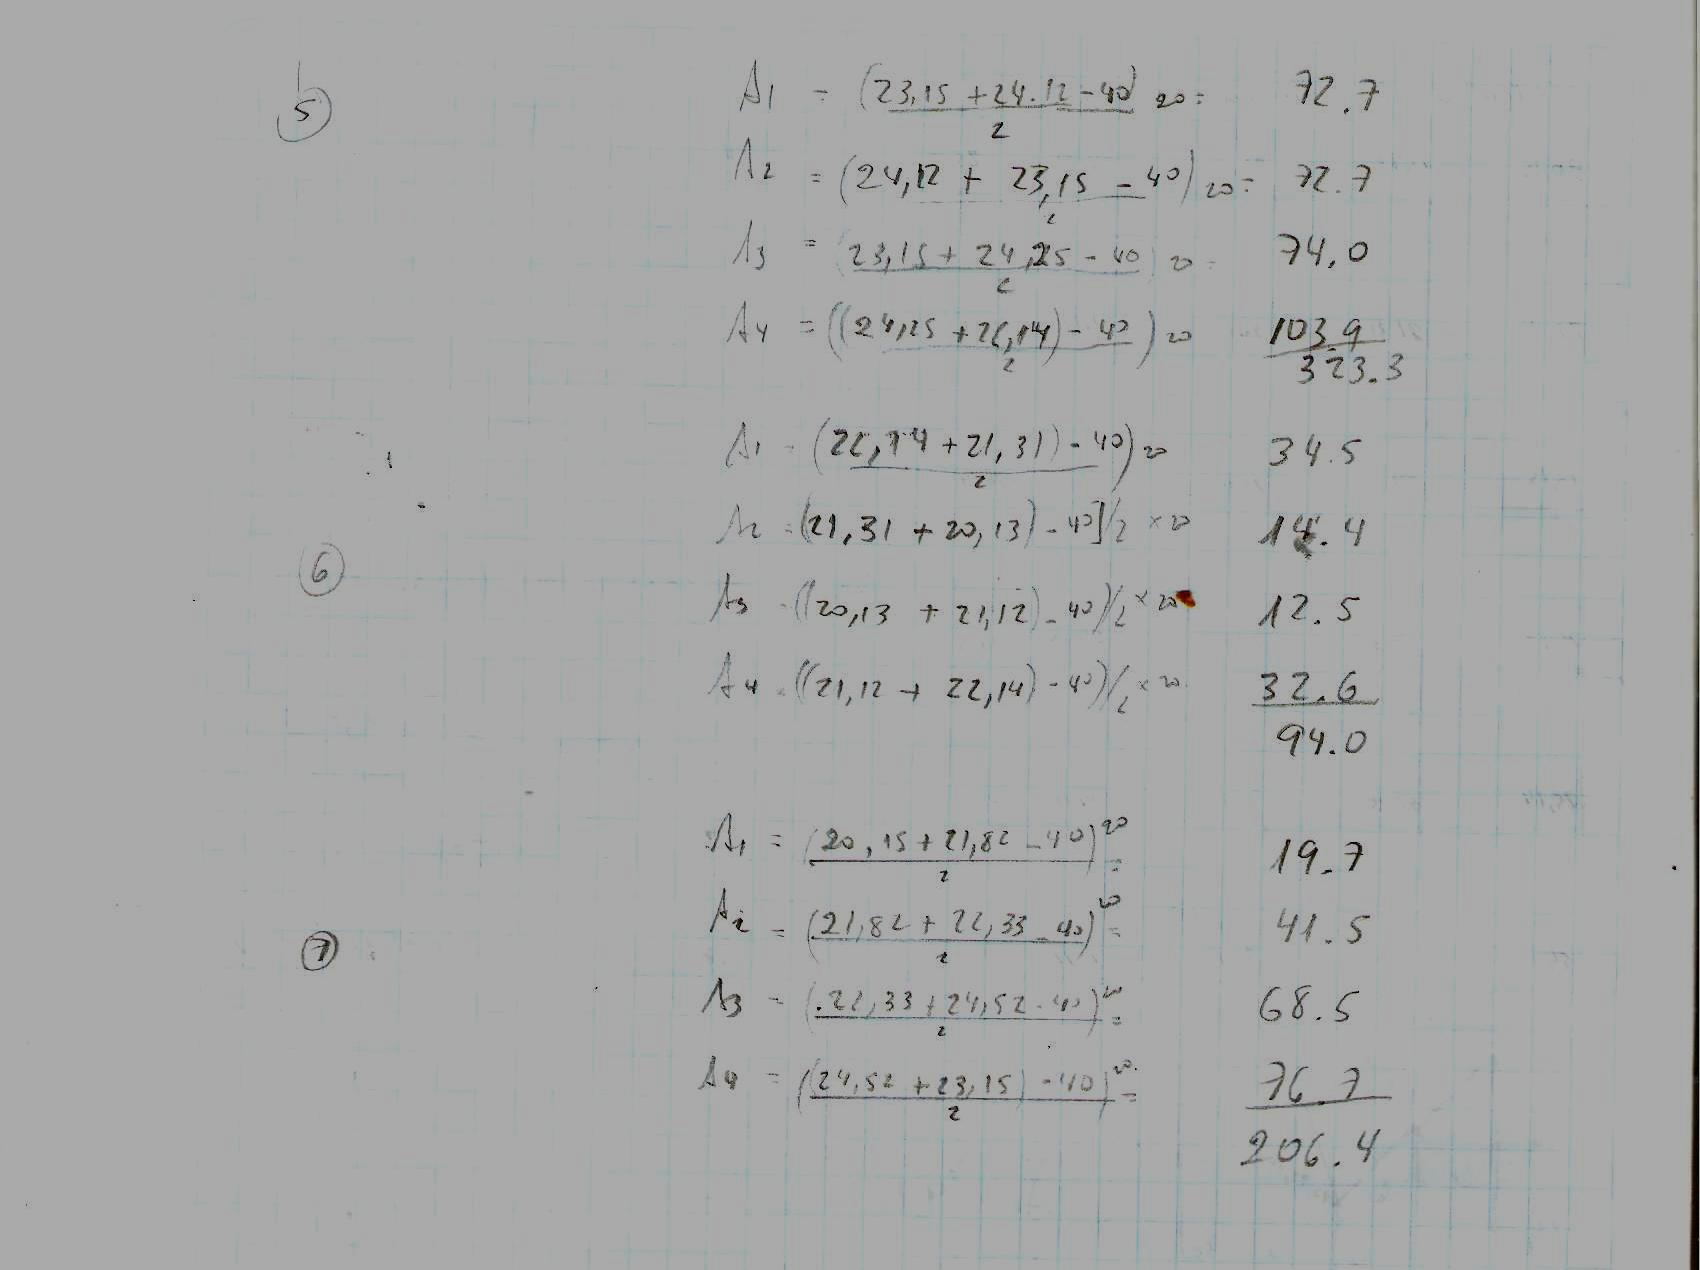 5
A1 = (23,15 + 24.12 - 40) 20 = 72.7
2
A2 = (24,12 + 23,15 - 40) 20 = 72.7
2
A3 = (23,15 + 24,25 - 40) 20 = 74,0
2
A4 = ((24,25 + 26,14) - 40) 20 103.9
2
323.3
A1 = (22,14 + 21,31) - 40) 20 34.5
2
6
A2 = (21,31 + 20,13) - 40]/2 × 20 14.4
A3 = ((20,13 + 21,12) - 40)/2 × 20 12.5
A4 = ((21,12 + 22,14) - 40)/2 × 20 32.6
94.0
7
A1 = (20,15 + 21,82 - 40) 20 = 19.7
2
A2 = (21,82 + 22,33 - 40) 20 = 41.5
2
A3 = (22,33 + 24,52 - 40) 20 = 68.5
2
A4 = ((24,52 + 23,15) - 40) 20 = 76.7
2
206.4